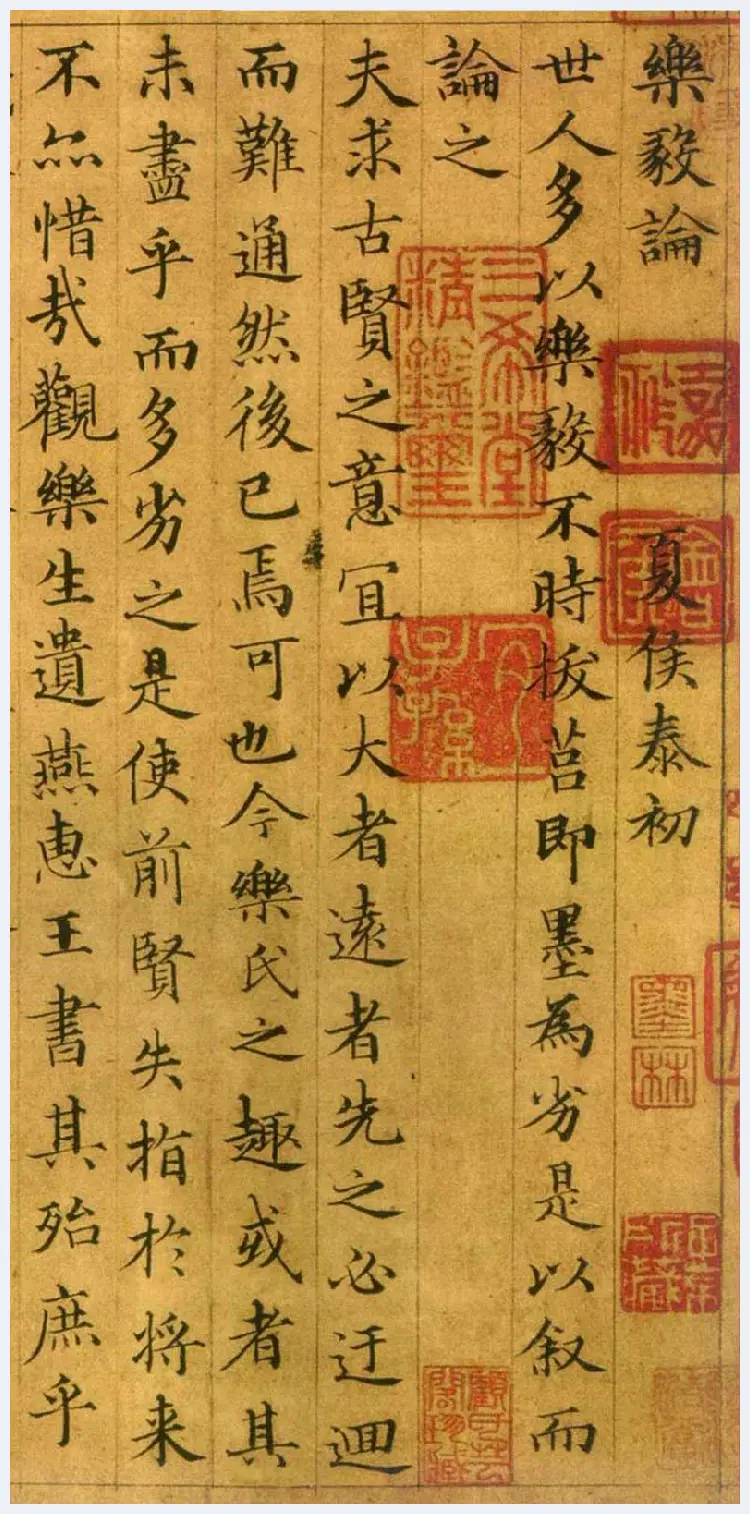 樂毅論 夏侯泰初
世人多以樂毅不時拔莒即墨為劣是以叙而
論之
夫求古賢之意宜以大者遠者先之必迂迴
而難通然後已焉可也今樂氏之趣或者其
未盡乎而多劣之是使前賢失指於将来
不亦惜哉觀樂生遺燕惠王書其殆庶乎
三希堂
精鑑璽
宜子孫
墨林